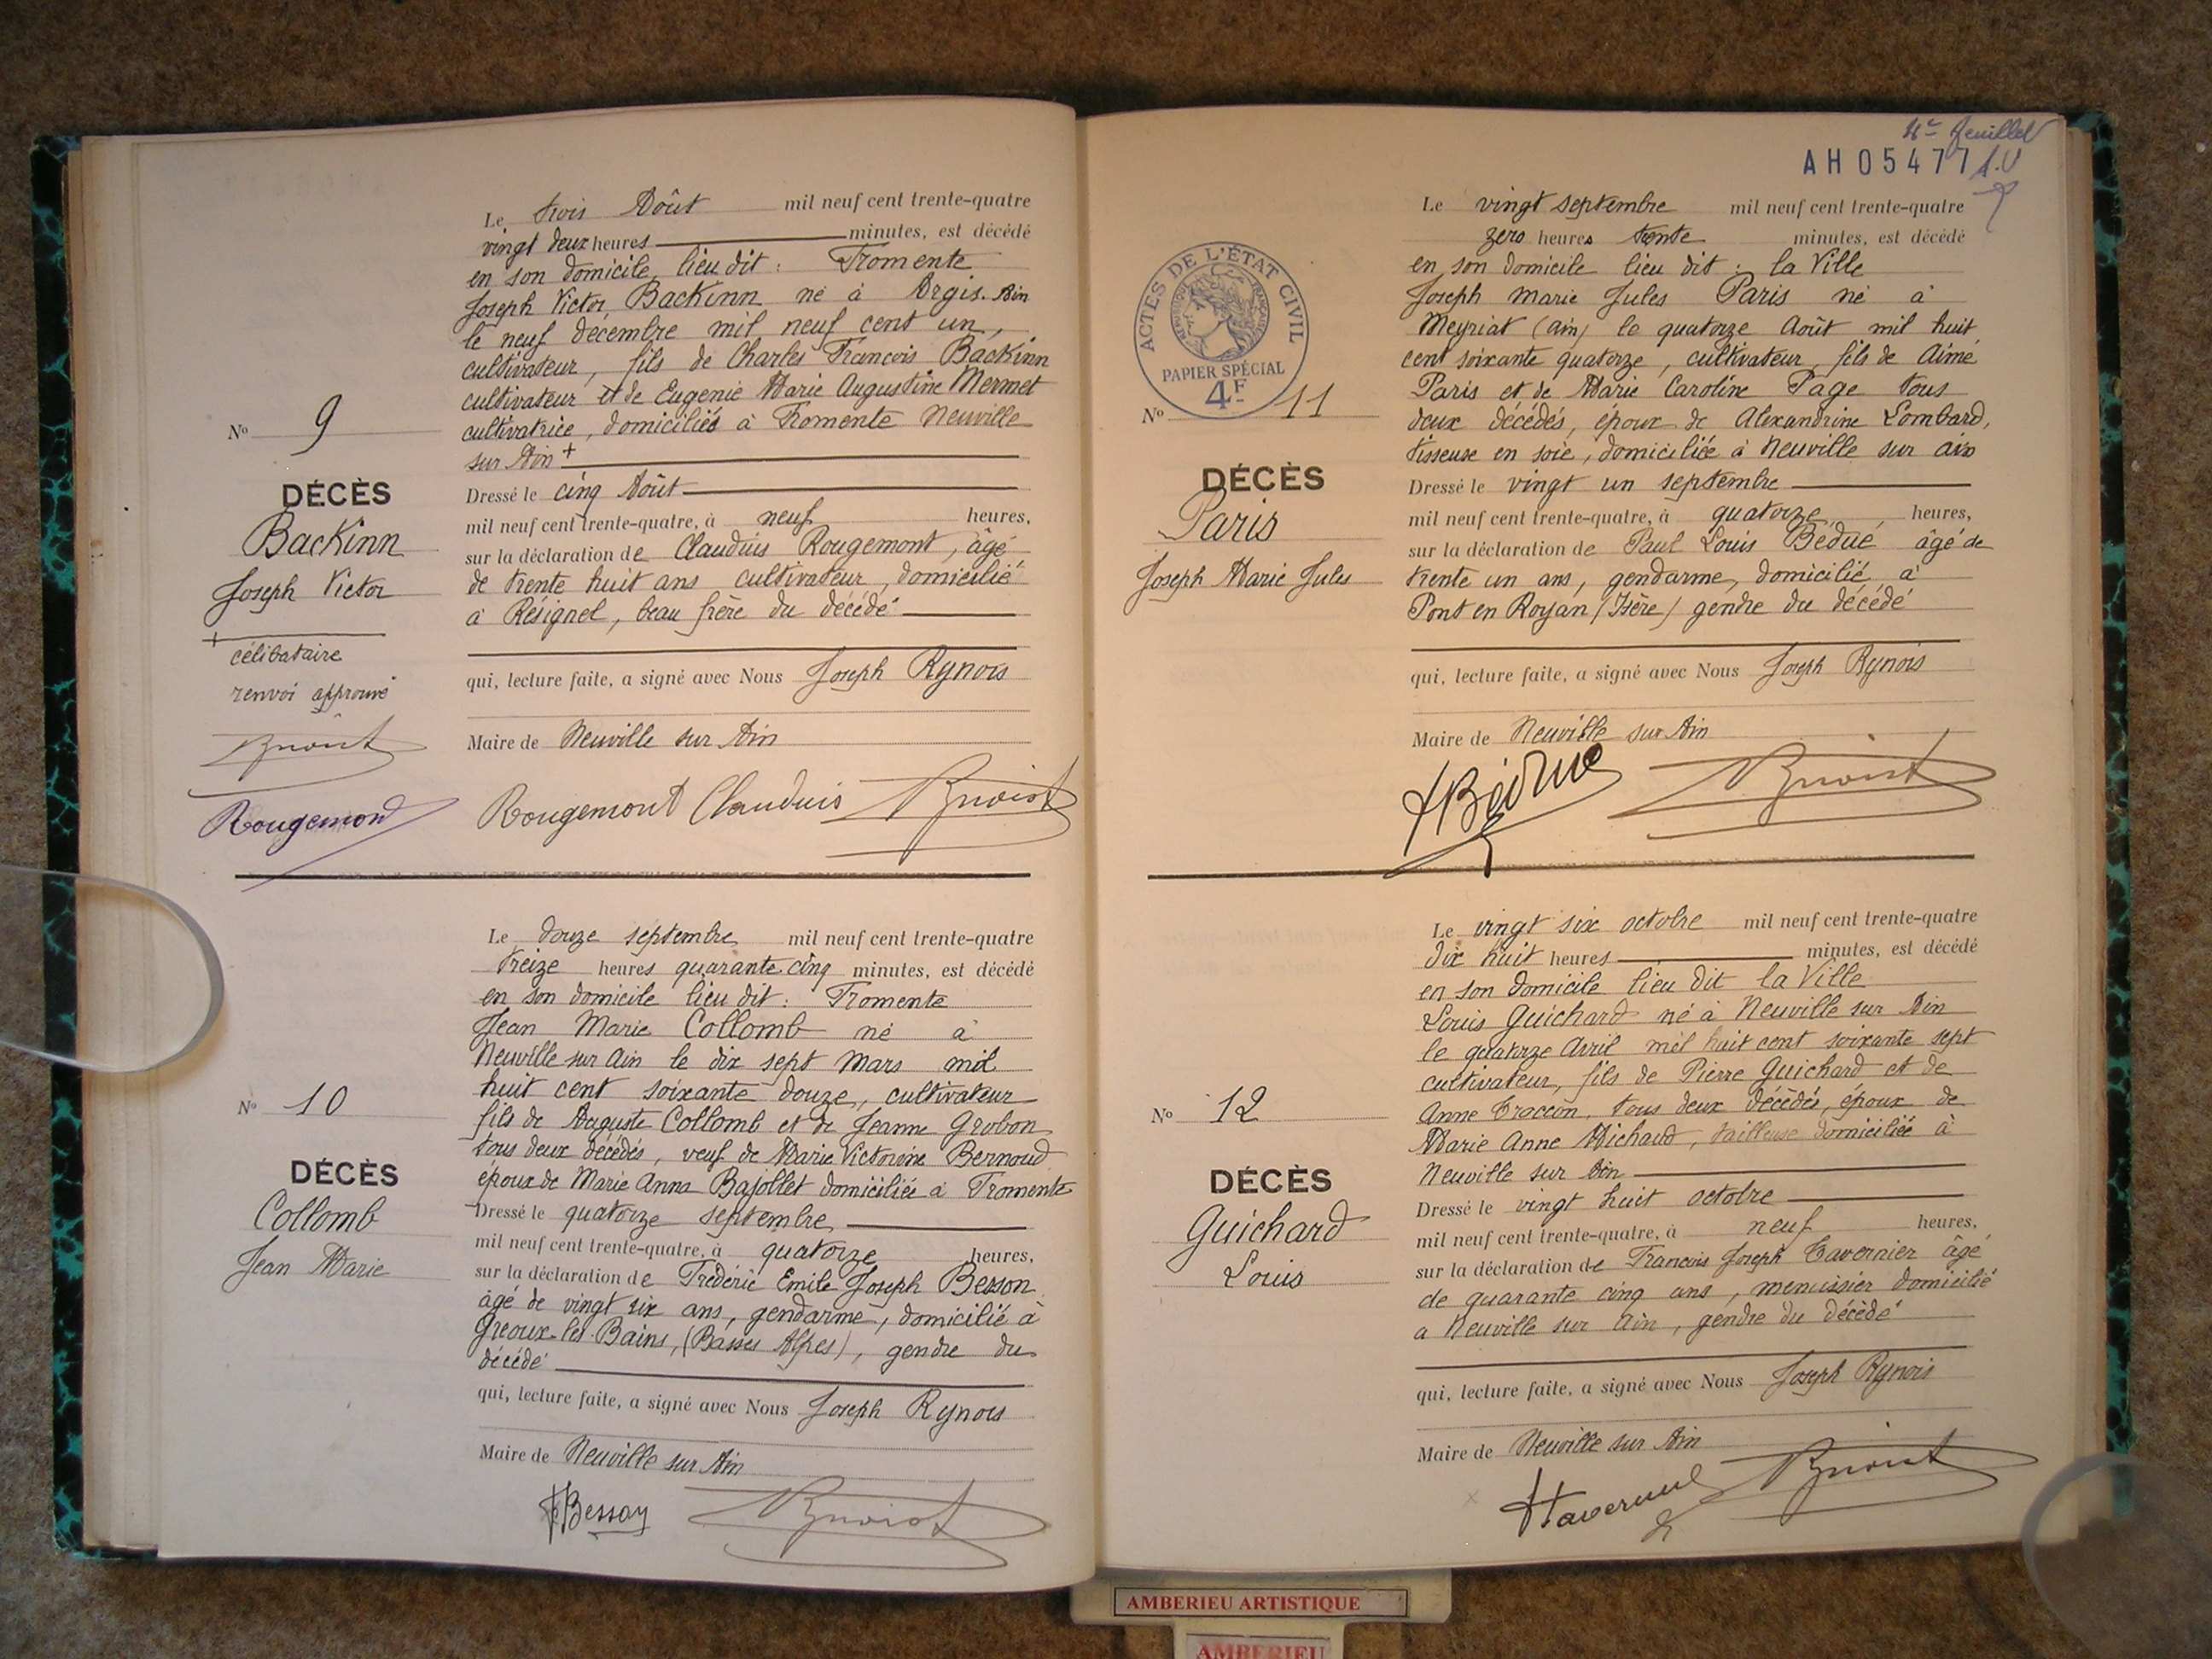 Le trois Août mil neuf cent trente-quatre
vingt deux heures minutes, est décédé
en son domicile, lieu dit : Fromente
Joseph Victor Backinn né à Argis. Ain
le neuf décembre mil neuf cent un,
cultivateur, fils de Charles François Backinn
cultivateur et de Eugenie Marie Augustine Mermet
cultivatrice, domiciliés à Fromente Neuville
sur Ain +
Dressé le cinq Août
mil neuf cent trente-quatre, à neuf heures,
sur la déclaration de Claudius Rougemont, âgé
de trente huit ans cultivateur, domicilié
à Résignel, beau frère du décédé
qui, lecture faite, a signé avec Nous Joseph Rynois
Maire de Neuville sur Ain
Rougemont Clauduis
No 9
DÉCÈS
Backinn
Joseph Victor
+
célibataire
renvoi approuvé
Rougemond
Le douze septembre mil neuf cent trente-quatre
treize heures quarante cinq minutes, est décédé
en son domicile lieu dit : Fromente
Jean Marie Collomb né à
Neuville sur Ain le dix sept mars mil
huit cent soixante douze, cultivateur
fils de Auguste Collomb et de Jeanne Grobon
tous deux décédés, veuf de Marie Victorine Bernoud
époux de Marie Anna Bajollet domiciliée à Fromente
Dressé le quatorze septembre
mil neuf cent trente-quatre, à quatorze heures,
sur la déclaration de Frédéric Emile Joseph Besson
âgé de vingt six ans, gendarme, domicilié à
Greoux-les-Bains, (Basses Alpes), gendre du
décédé
qui, lecture faite, a signé avec Nous Joseph Rynois
Maire de Neuville sur Ain
FBesson
No 10
DÉCÈS
Collomb
Jean Marie
4e feuillet
AH05477
ACTES DE L'ÉTAT CIVIL
RÉPUBLIQUE FRANÇAISE
PAPIER SPÉCIAL
4F
Le vingt septembre mil neuf cent trente-quatre
zero heures trente minutes, est décédé
en son domicile lieu dit : la Ville
Joseph Marie Jules Paris né à
Meyriat (Ain) le quatorze Août mil huit
cent soixante quatorze, cultivateur, fils de Aimé
Paris et de Marie Caroline Page tous
deux décédés, époux de Alexandrine Lombard,
tisseuse en soie, domiciliée à Neuville sur Ain
Dressé le vingt un septembre
mil neuf cent trente-quatre, à quatorze heures,
sur la déclaration de Paul Louis Bédué âgé de
trente un ans, gendarme, domicilié à
Pont en Royan (Isère) gendre du décédé
qui, lecture faite, a signé avec Nous Joseph Rynois
Maire de Neuville sur Ain
No 11
DÉCÈS
Paris
Joseph Marie Jules
Le vingt six octobre mil neuf cent trente-quatre
dix huit heures minutes, est décédé
en son domicile lieu dit la Ville
Louis Guichard né à Neuville sur Ain
le quatorze Avril mil huit cent soixante sept
cultivateur, fils de Pierre Guichard et de
Anne Traccon, tous deux décédés, époux de
Marie Anne Michaud, tailleuse domiciliée à
Neuville sur Ain
Dressé le vingt huit octobre
mil neuf cent trente-quatre, à neuf heures,
sur la déclaration de François Joseph Tavernier âgé
de quarante cinq ans, menuisier domicilié
à Neuville sur Ain, gendre du décédé
qui, lecture faite, a signé avec Nous Joseph Rynois
Maire de Neuville sur Ain
No 12
DÉCÈS
Guichard
Louis
AMBERIEU ARTISTIQUE
AMBERIEU